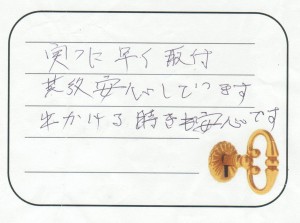 実に早く取付
其後安心しています
出かける時も安心です